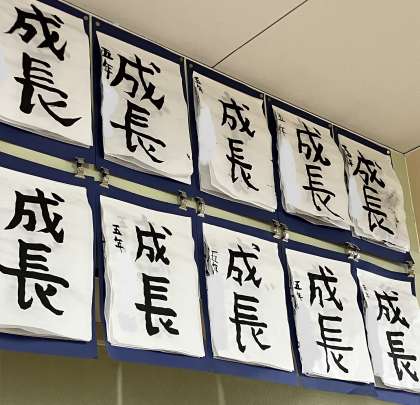 成長
五年 成長
五年 成長
五年 成長
五年 成長
成長
五年 成長
五年 成長
五年 成長
五年 成長